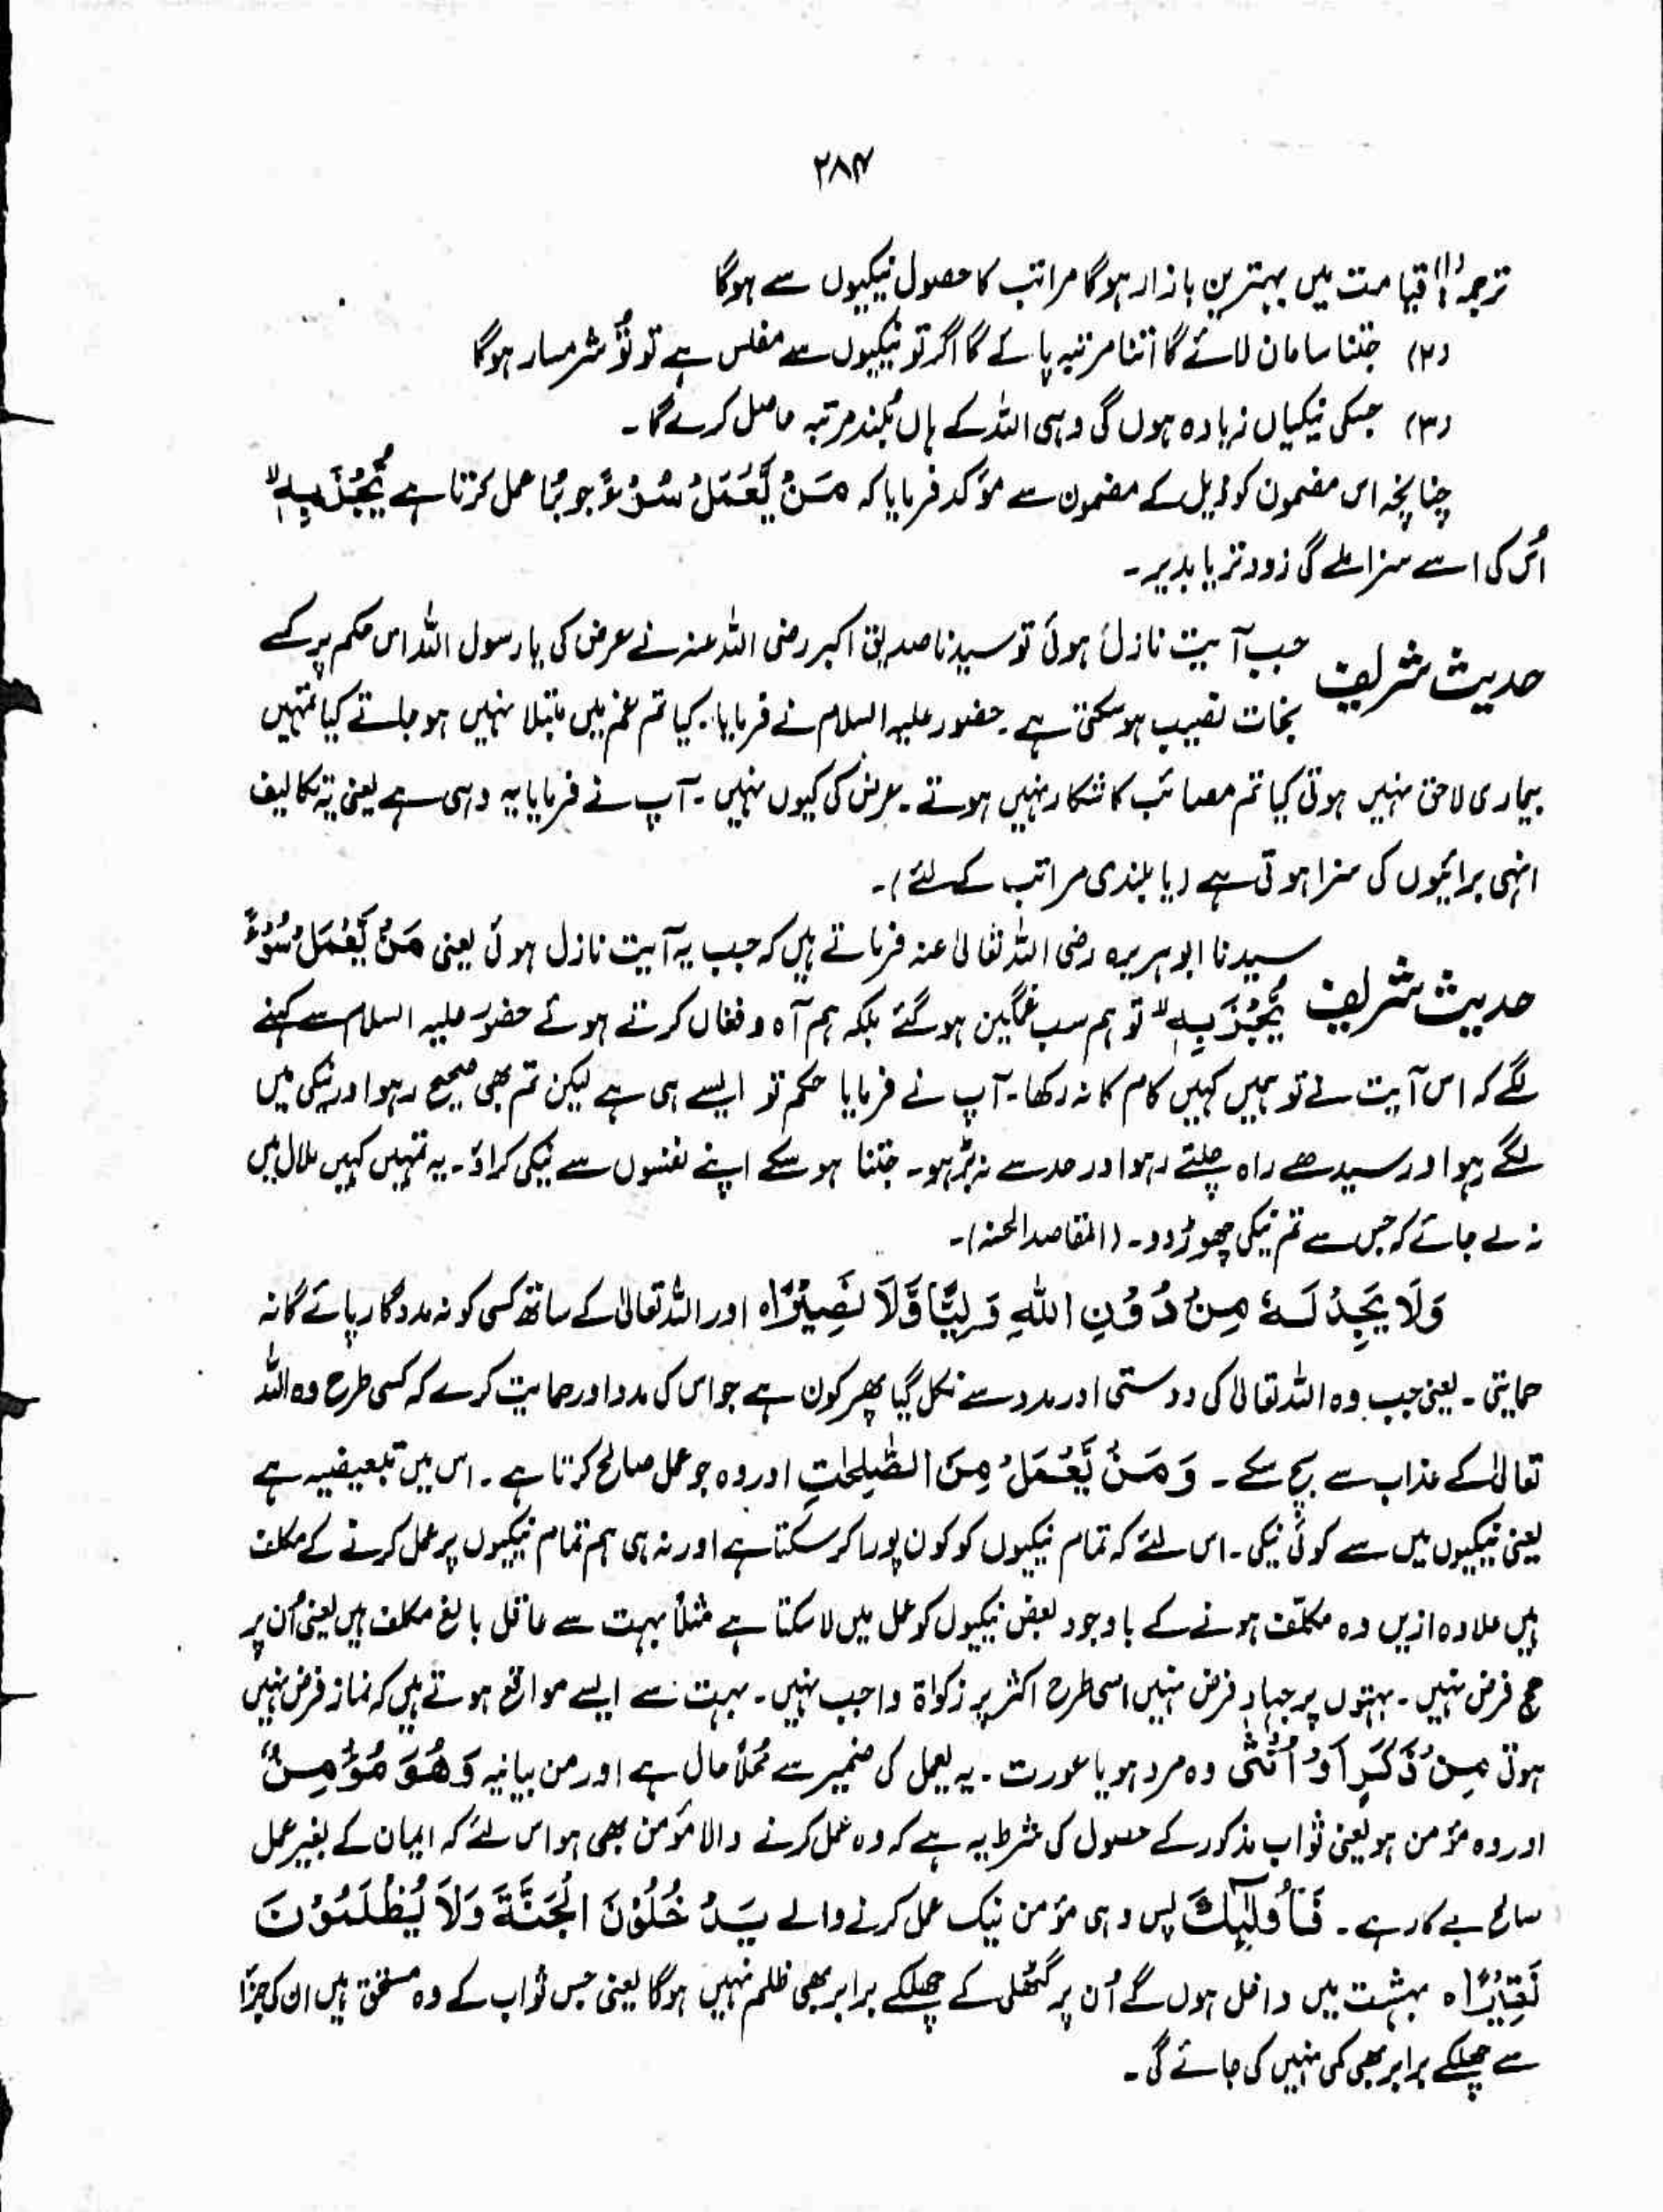 ۲۸۴
ترجمہ (۱) قیامت میں بہترین بازار ہوگا مراتب کا حصول نیکیوں سے ہوگا
(۲) جتنا سامان لائے گا اتنا مرتبہ پائے گا اگر تو نیکیوں سے مفلس ہے تو تُو شرمسار ہوگا
(۳) جسکی نیکیاں زیادہ ہوں گی وہی اللہ کے ہاں بُلند مرتبہ حاصل کرے گا۔
چنانچہ اس مضمون کو ذیل کے مضمون سے مؤکد فرمایا کہ مَنْ یَّعْمَلْ سُوْٓءً جو بُرا عمل کرتا ہے یُّجْزَ بِہٖ ۙ
اُس کی اسے سزا ملے گی زود تر یا بدیر۔
حدیث شریف جب آیت نازل ہوئی تو سیدنا صدیق اکبر رضی اللہ عنہ نے عرض کی یا رسول اللہ اس حکم پر کسے
نجات نصیب ہوسکتی ہے۔ حضور علیہ السلام نے فرمایا۔ کیا تم غم میں مبتلا نہیں ہو جاتے کیا تمہیں
بیماری لاحق نہیں ہوتی کیا تم مصائب کا شکار نہیں ہوتے۔ عرض کی کیوں نہیں۔ آپ نے فرمایا یہ وہی ہے یعنی یہ تکالیف
انہی برائیوں کی سزا ہوتی ہے (یا بلندی مراتب کے لئے)۔
حدیث شریف سیدنا ابو ہریرہ رضی اللہ تعالیٰ عنہ فرماتے ہیں کہ جب یہ آیت نازل ہوئی یعنی مَنْ یَّعْمَلْ سُوْٓءً
یُّجْزَ بِہٖ ۙ تو ہم سب غمگین ہوگئے بلکہ ہم آہ و فغاں کرتے ہوئے حضور علیہ السلام سے کہنے
لگے کہ اس آیت نے تو ہمیں کہیں کام کا نہ رکھا۔ آپ نے فرمایا حکم تو ایسے ہی ہے لیکن تم بھی صحیح رہو اور نیکی میں
لگے رہو اور سیدھے راہ چلتے رہو اور حد سے نہ بڑہو۔ جتنا ہو سکے اپنے نفسوں سے نیکی کراؤ۔ یہ تمہیں کہیں ملال میں
نہ لے جائے کہ جس سے تم نیکی چھوڑ دو۔ (المقاصد الحسنہ)۔
وَلَا یَجِدْ لَہٗ مِنْ دُوْنِ اللّٰہِ وَلِیًّا وَّلَا نَصِیْرًا ہ اور اللہ تعالیٰ کے ساتھ کسی کو نہ مددگار پائے گا نہ
حمایتی۔ یعنی جب وہ اللہ تعالیٰ کی دوستی اور مدد سے نکل گیا پھر کون ہے جو اس کی مدد اور حمایت کرے کہ کسی طرح وہ اللہ
تعالیٰ کے عذاب سے بچ سکے۔ وَ مَنْ یَّعْمَلْ مِنَ الصّٰلِحٰتِ اور وہ جو عمل صالح کرتا ہے۔ اس میں تبعیضیہ ہے
یعنی نیکیوں میں سے کوئی نیکی۔ اس لئے کہ تمام نیکیوں کو کون پورا کرسکتا ہے اور نہ ہی ہم تمام نیکیوں پر عمل کرنے کے مکلف
ہیں علاوہ ازیں وہ مکلّف ہونے کے باوجود بعض نیکیوں کو عمل میں لاسکتا ہے مثلاً بہت سے عاقل بالغ مکلف ہیں یعنی اُن پر
حج فرض نہیں۔ بہتوں پر جہاد فرض نہیں اسی طرح اکثر پر زکواۃ واجب نہیں۔ بہت سے ایسے مواقع ہوتے ہیں کہ نماز فرض نہیں
ہوتی مِنْ ذَکَرٍ اَوْ اُنْثٰی وہ مرد ہو یا عورت۔ یہ یعمل کی ضمیر سے مُملاً حال ہے اور من بیانیہ وَھُوَ مُؤْمِنٌ
اور وہ مؤمن ہو یعنی ثواب مذکور کے حصول کی شرط یہ ہے کہ وہ عمل کرنے والا مؤمن بھی ہو اس لئے کہ ایمان کے بغیر عمل
صالح بے کار ہے۔ فَاُولٰٓئِکَ پس وہی مؤمن نیک عمل کرنے والے یَدْخُلُوْنَ الْجَنَّۃَ وَلَا یُظْلَمُوْنَ
نَقِیْرًا ہ بہشت میں داخل ہوں گے اُن پر گٹھلی کے چھلکے برابر بھی ظلم نہیں ہوگا یعنی جس ثواب کے وہ مستحق ہیں ان کی جزا
سے چھلکے برابر بھی کمی نہیں کی جائے گی۔